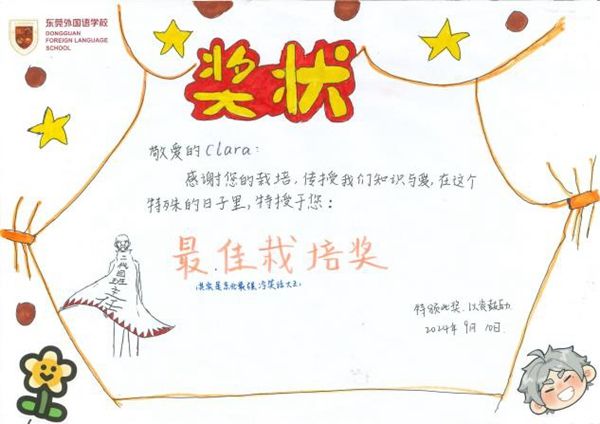 东莞外国语学校
DONGGUAN
FOREIGN LANGUAGE
SCHOOL
奖状
敬爱的Clara:
感谢您的栽培,传授我们知识与爱,在这个
特殊的日子里,特授于您:
最佳栽培奖
其实是东北最强冷笑话大王
二代目班主任
特颁此奖,以资鼓励.
2024年9月10日.